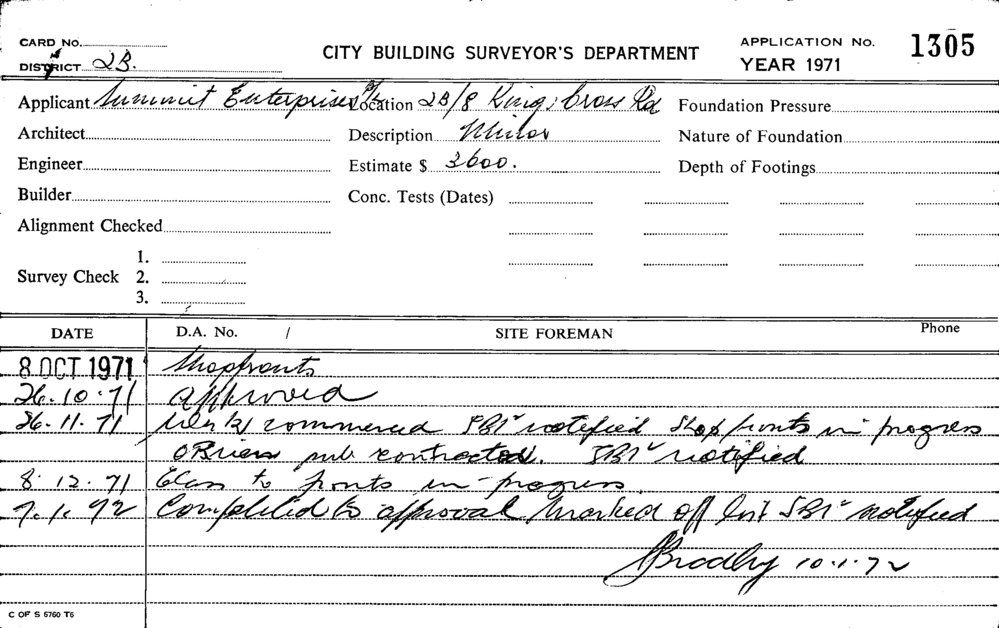 CARD No.
DISTRICT 2B.
CITY BUILDING SURVEYOR'S DEPARTMENT
APPLICATION No. 1305
YEAR 1971
Applicant Summit Enterprises P/L Location 2B/8 Kings Cross Rd Foundation Pressure
Architect Description Minor Nature of Foundation
Engineer Estimate $ 3600. Depth of Footings
Builder Conc. Tests (Dates)
Alignment Checked
Survey Check 1.
2.
3.
DATE D.A. No. / SITE FOREMAN Phone
8 OCT 1971 Shopfronts
26.10.71 Approved
26.11.71 Work commenced notified Shop fronts in progress
O'Brien sub contracted. notified
8.12.71 Glass to fronts in progress.
7.1.72 Completed to approval Marked off list notified
Bradly 10.1.72
C OF S 5760 T6